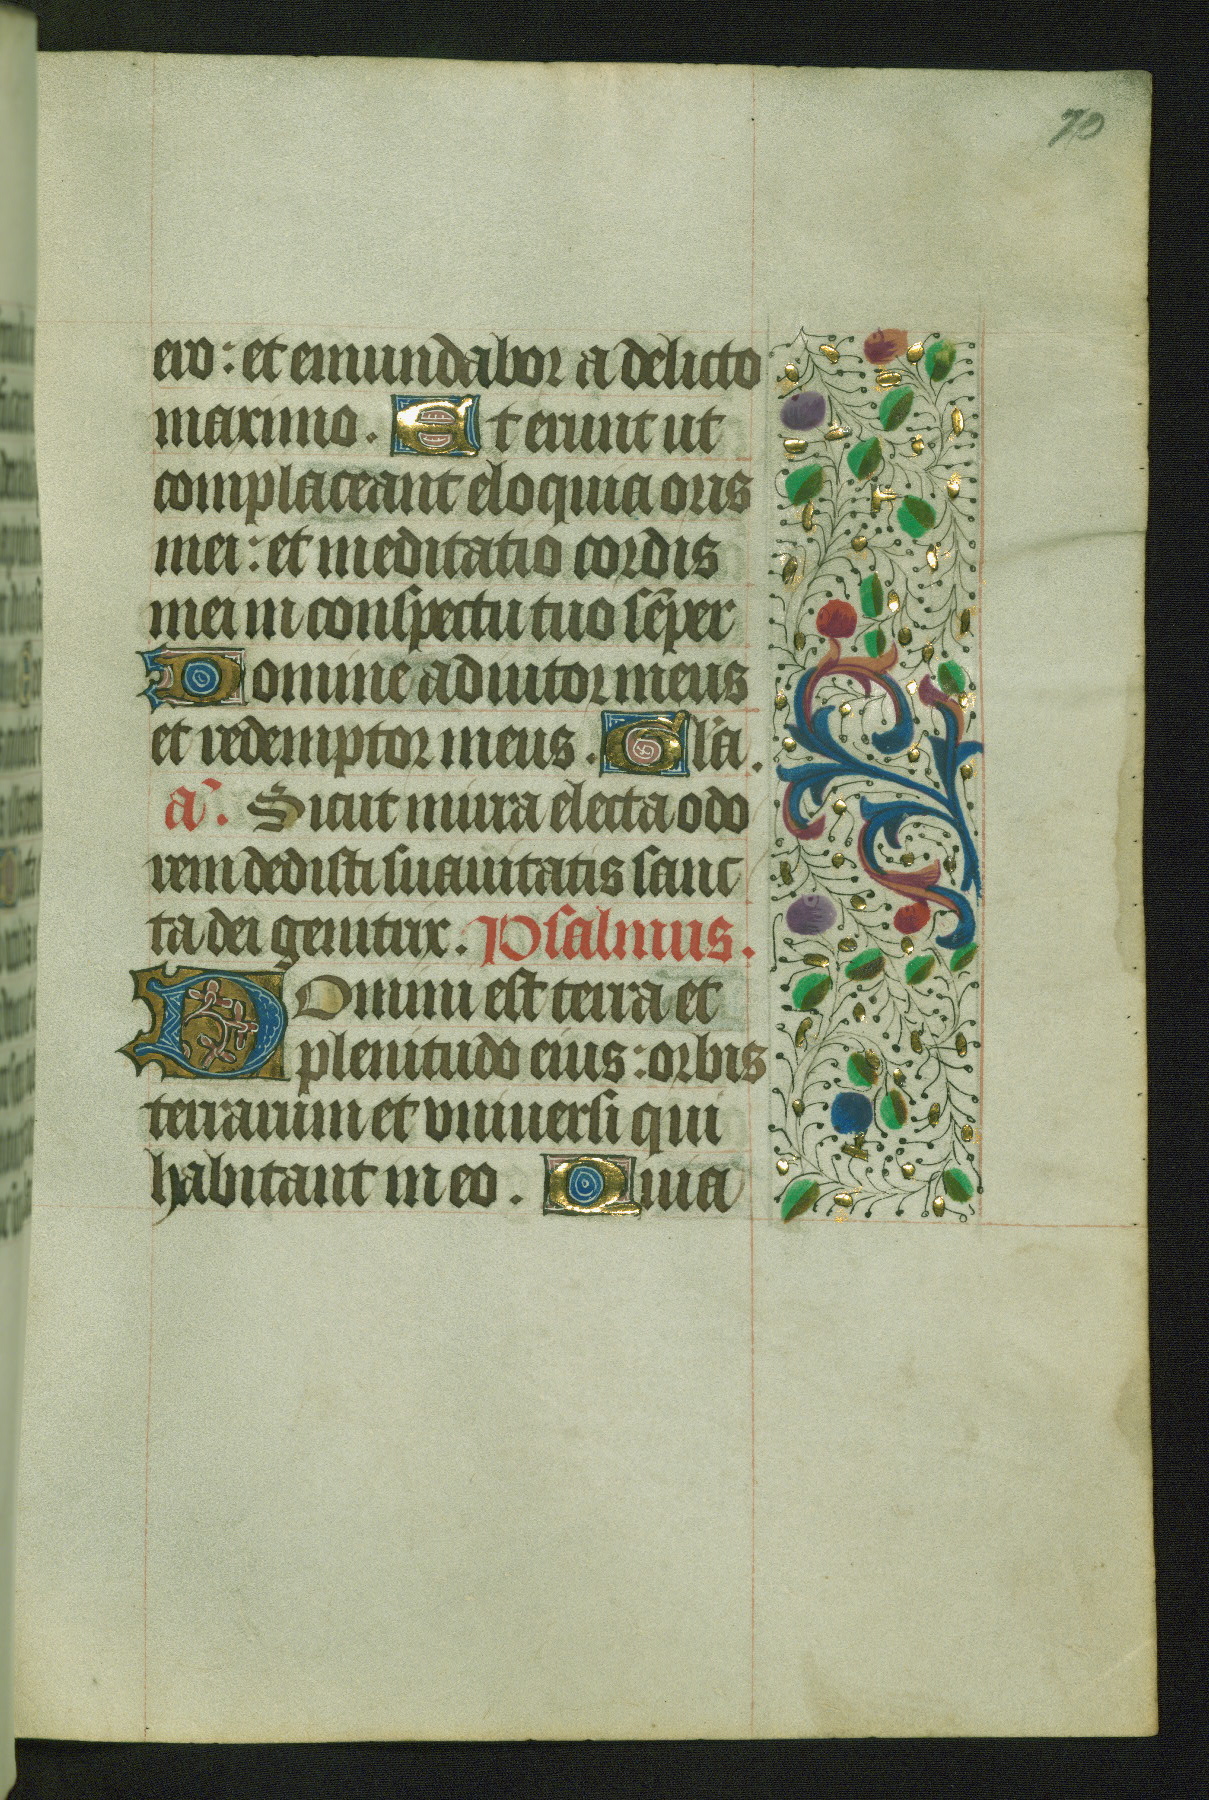 70
ero: et emundabor a delicto
maximo. Et erunt ut
complaceant eloquia oris
mei: et meditatio cordis
mei in conspectu tuo sēper
Domine adiutor meus
et redemptor meus. Gl̄a.
a̅. Sicut mirra electa odo
rem dedisti suauitatis sanc
ta dei genitrix. Psalmus.
DOmini est terra et
plenitudo eius: orbis
terrarum et vniuersi qui
habitant in eo. Quia